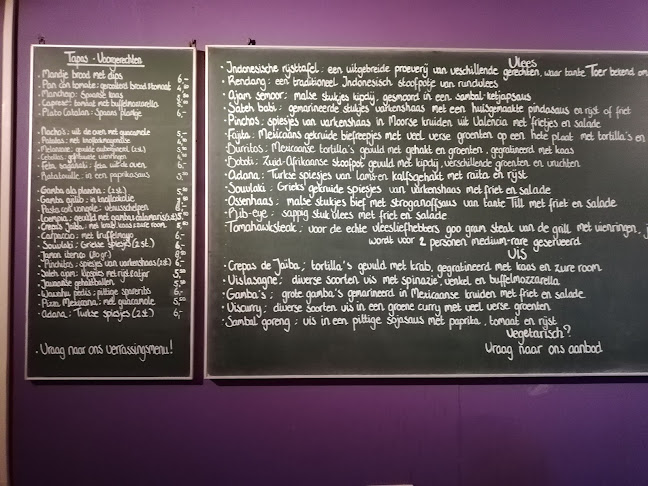 Tapas - Voorgerechten
· Mandje brood met dips 6,-
· Pan con tomate: geroosterd brood & tomaat 4,50
· Manchego: Spaanse kaas
· Caprese: tomaat met buffelmozzarella
· Plato Catalan: Spaans plankje 6,-
· Nacho's: uit de oven met guacamole 5,-
· Patatas: met knoflookmayonaise
· Melanzane: gevulde auberginerol (2 st.)
· Cebollas: gefrituurde uienringen
· Feta saganaki: feta uit de oven
· Ratatouille: in een paprikasaus
· Gamba ala plancha: (2 st.)
· Gamba ajillo: in knoflookolie
· Pasta con vongole: venusschelpen 6,-
· Loempia: gevuld met gamba & calamaris (2 st.)
· Crepas Jaiba: met krab, kaas & zure room
· Carpaccio: met truffelmayo
· Souvlaki: Griekse spiesjes (2 st.) 6,-
· Jamon iberico (80 gr.)
· Pinchitos: spiesjes van varkenshaas (2 st.) 6,-
· Sateh ajam: kipspies met rijst & atjar
· Javaanse gehaktballen
· Wawahu pedis: pittige spareribs 6,-
· Pizza Mexicana: met guacamole 5,-
· Adana: Turkse spiesjes (2 st.) 6,-
· Vraag naar ons verrassingsmenu!
Vlees
· Indonesische rijsttafel: een uitgebreide proeverij van verschillende gerechten, waar tante Toer bekend om
· Rendang: een traditioneel Indonesisch stoofpotje van rundvlees
· Ajam semoor: malse stukjes kipdij, gesmoord in een sambal-ketjapsaus
· Sateh babi: gemarineerde stukjes varkenshaas met een huisgemaakte pindasaus en rijst of friet
· Pinchos: spiesjes van varkenshaas in Moorse kruiden uit Valencia met frietjes en salade
· Fajita: Mexicaans gekruide biefreepjes met veel verse groenten op een hete plaat met tortilla's en
· Burritos: Mexicaanse tortilla's gevuld met gehakt en groenten, gegratineerd met kaas
· Boboti: Zuid-Afrikaanse stoofpot gevuld met kipdij, verschillende groenten en vruchten
· Adana: Turkse spiesjes van lams- en kalfsgehakt met raita en rijst
· Souvlaki: Grieks gekruide spiesjes van varkenshaas met friet en salade
· Ossenhaas: malse stukjes bief met stroganoffsaus van tante Till met friet en salade
· Rib-eye: sappig stuk vlees met friet en salade
· Tomahawksteak: voor de echte vleesliefhebbers 900 gram steak van de grill met uienringen,
wordt voor 2 personen medium-rare geserveerd
Vis
· Crepas de Jaiba: tortilla's gevuld met krab, gegratineerd met kaas en zure room
· Vislasagne: diverse soorten vis met spinazie, venkel en buffelmozzarella
· Gamba's: grote gamba's gemarineerd in Mexicaanse kruiden met friet en salade
· Viscurry: diverse soorten vis in een groene curry met veel verse groenten
· Sambal goreng: vis in een pittige sojasaus met paprika, tomaat en rijst
Vegetarisch?
Vraag naar ons aanbod